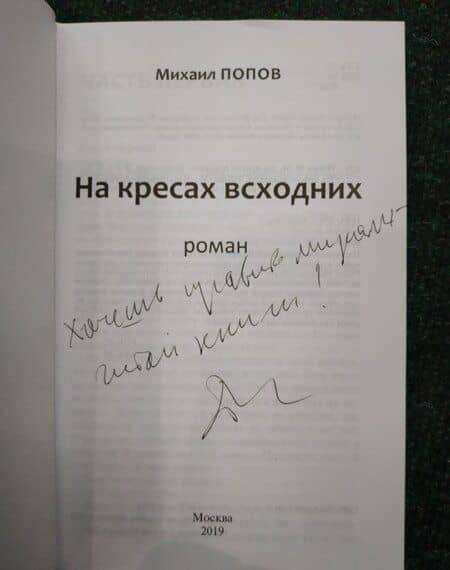 Михаил ПОПОВ
На кресах всходних
роман
Хочешь править миром -
читай книги!
Москва
2019